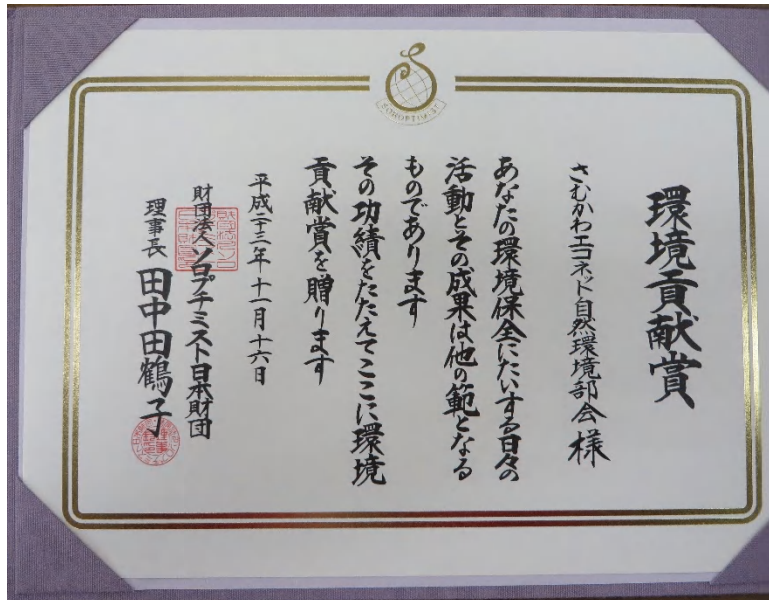 環境貢献賞
さむかわエコネット自然環境部会 様
あなたの環境保全にたいする日々の
活動とその成果は他の範となる
ものであります
その功績をたたえてここに環境
貢献賞を贈ります
平成二十三年十一月十六日
財団法人ソロプチミスト日本財団
理事長 田中田鶴子